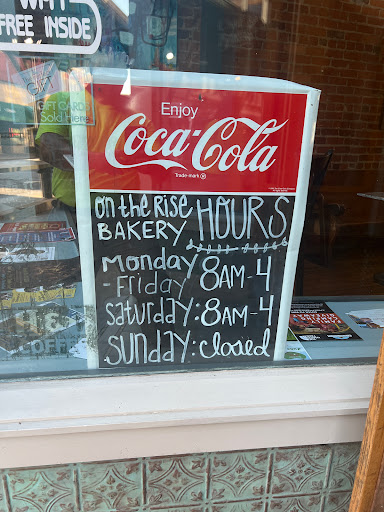 WiFi
FREE INSIDE
GIFT CARDS
Sold Here
Enjoy
Coca-Cola
Trade-mark ®
on the Rise
BAKERY
HOURS
monday
- Friday
8AM-4
saturday: 8AM-4
sunday: closed